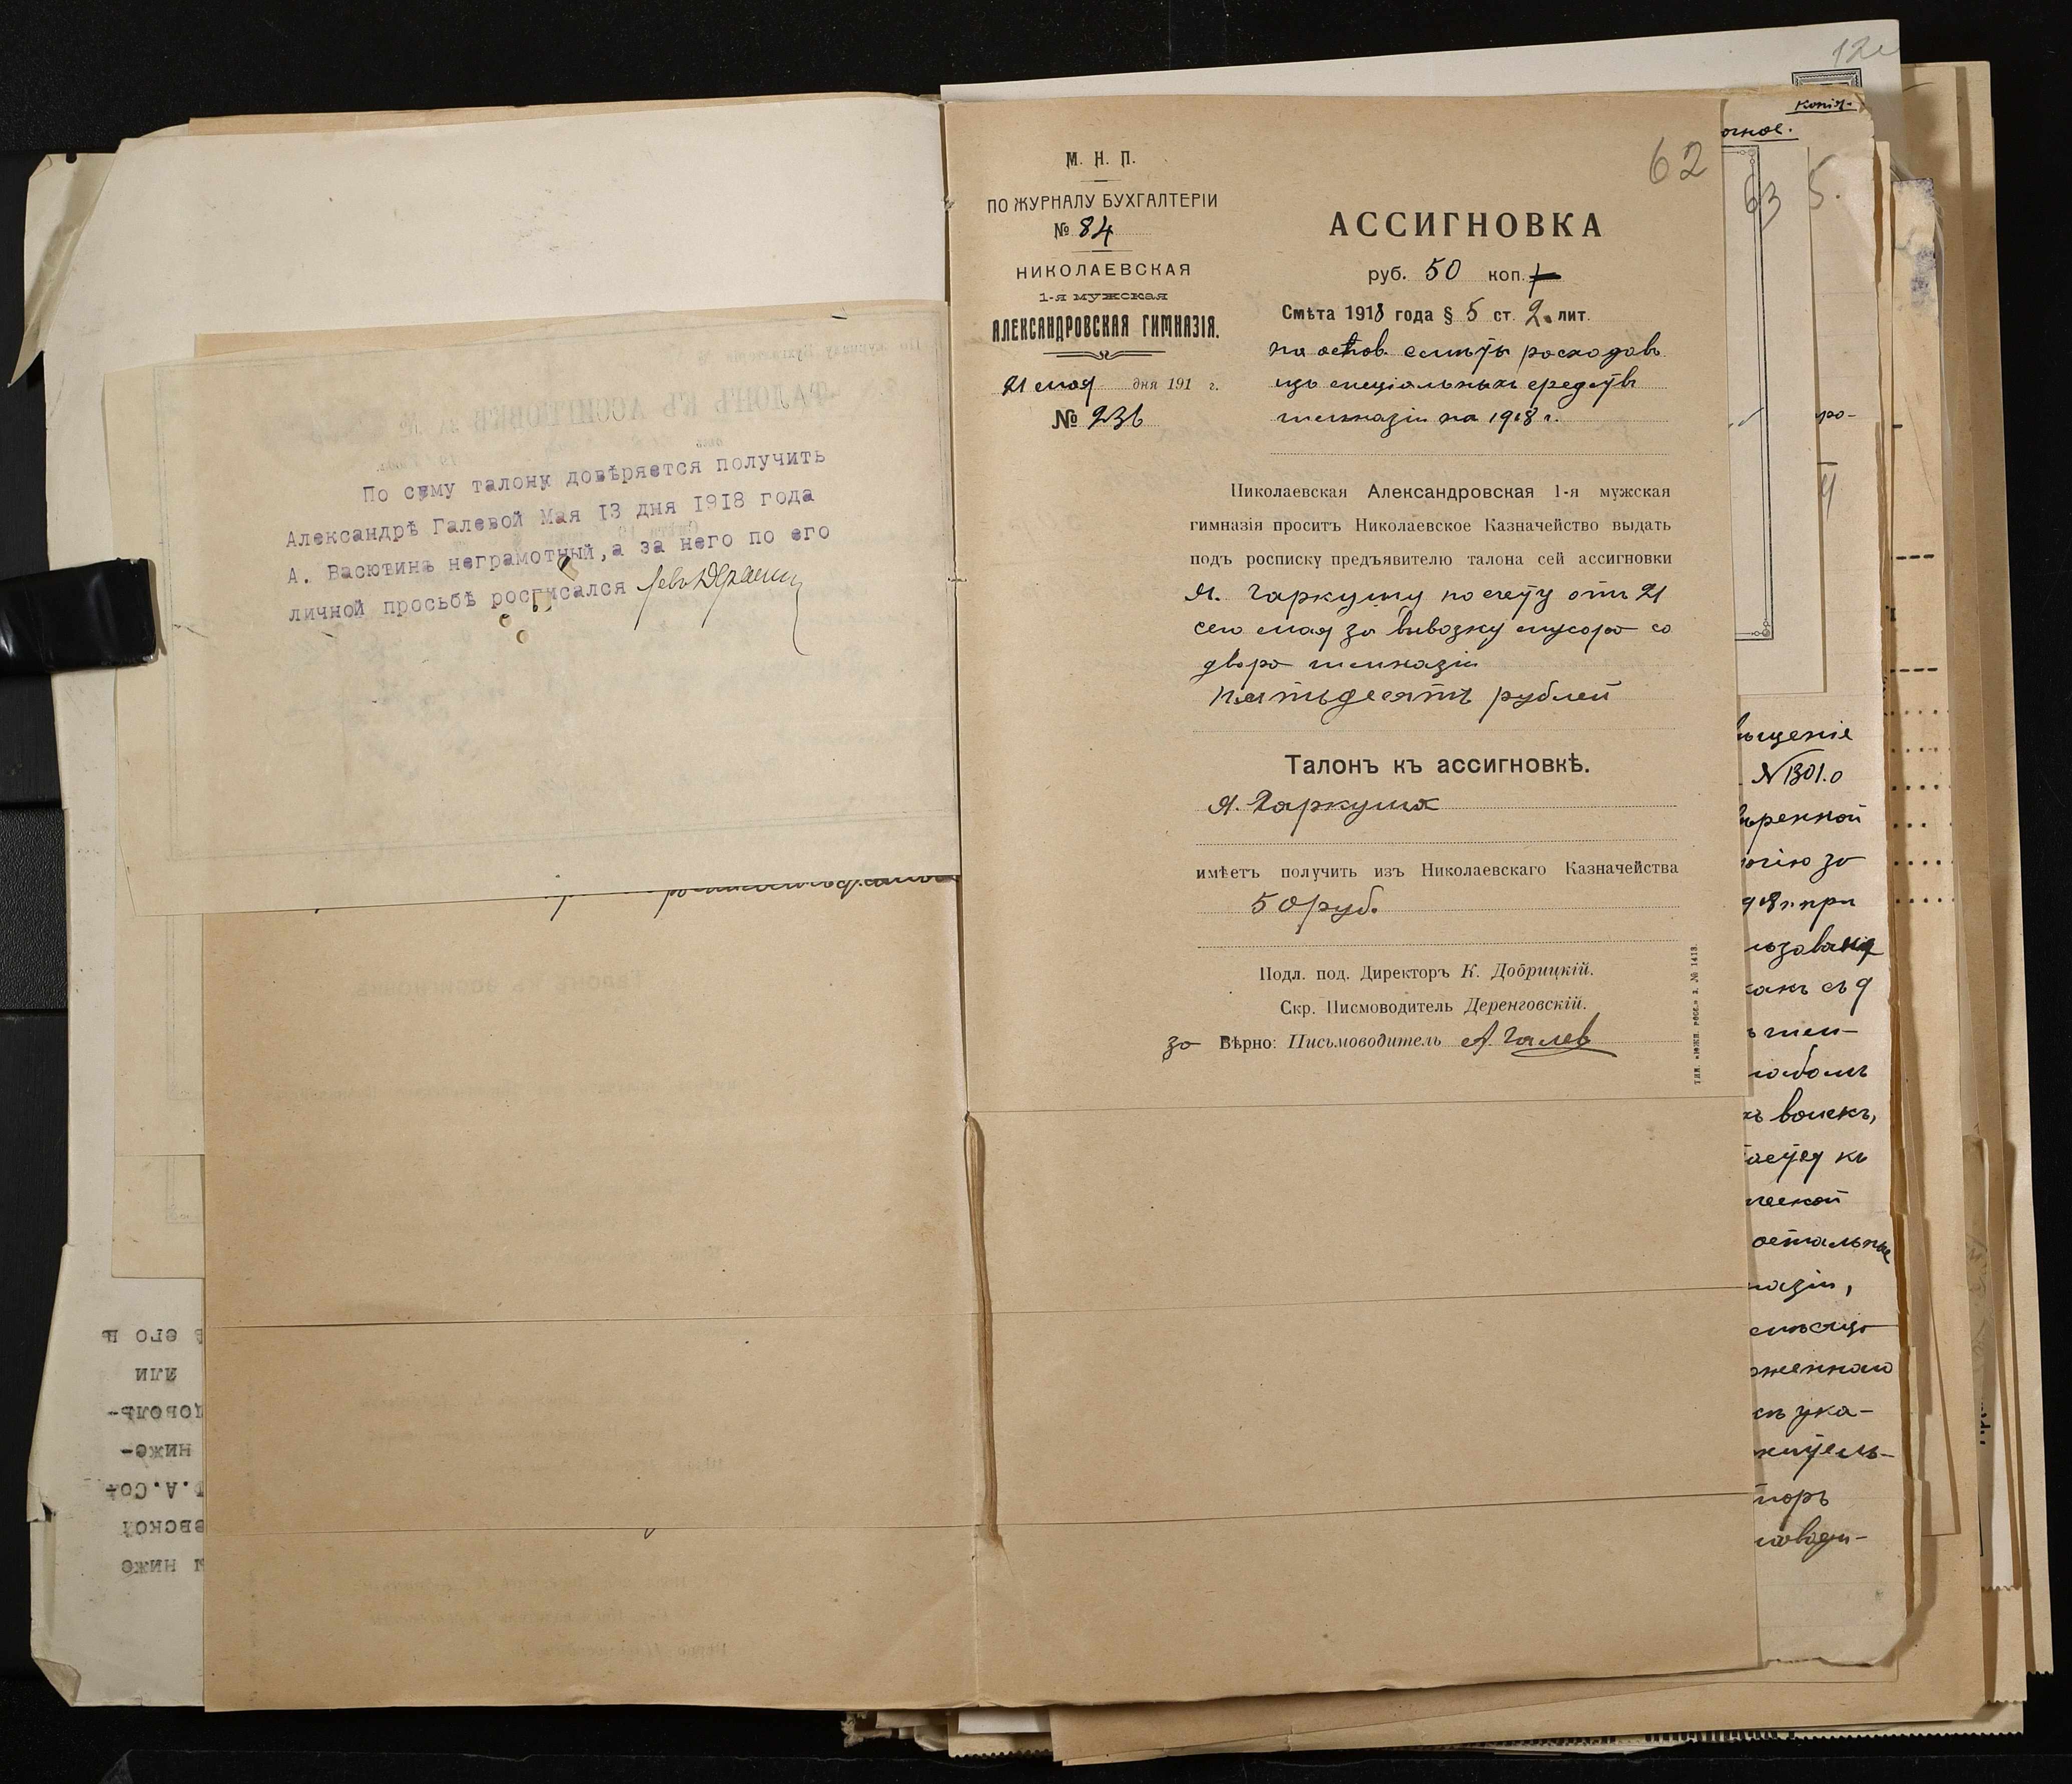 По сему талону довѣряется получить
Александрѣ Галевой Мая 13 дня 1918 года
А. Васютинъ неграмотный, а за него по его
личной просьбѣ росписался
ъ его н
или
доволь-
ниже-
А.Со-
евской
ы ниже
М. Н. П.
ПО ЖУРНАЛУ БУХГАЛТЕРІИ
№ 84
НИКОЛАЕВСКАЯ
1-я мужская
АЛЕКСАНДРОВСКАЯ ГИМНАЗІЯ.
21 мая дня 191 г.
№ 236
62
АССИГНОВКА
руб. 50 коп.
Смѣта 1918 года § 5 ст. 2. лит.
на основ. смѣты расходовъ
изъ спеціальныхъ средствъ
гимназіи на 1918 г.
Николаевская Александровская 1-я мужская
гимназія проситъ Николаевское Казначейство выдать
подъ росписку предъявителю талона сей ассигновки
Я. Гаркушу по счету отъ 21
сего мая за вывозку мусора со
двора гимназіи
пятьдесятъ рублей
Талонъ къ ассигновкѣ.
Я. Гаркуша
имѣетъ получить изъ Николаевскаго Казначейства
50 руб.
Подл. под. Директоръ К. Добрицкій.
Скр. Писмоводитель Деренговскій.
за Вѣрно: Письмоводитель А. Галев
тип. «южн. росс.» з. № 1413.
12
копія
очное.
63
5.
ро-
ѣщеніе
N 1301.
ѣренной
за
при
какъ съ 9
ъ гим-
хъ войскъ,
ческой
остальные
назіи,
женнаго
ука-
житель-
торъ